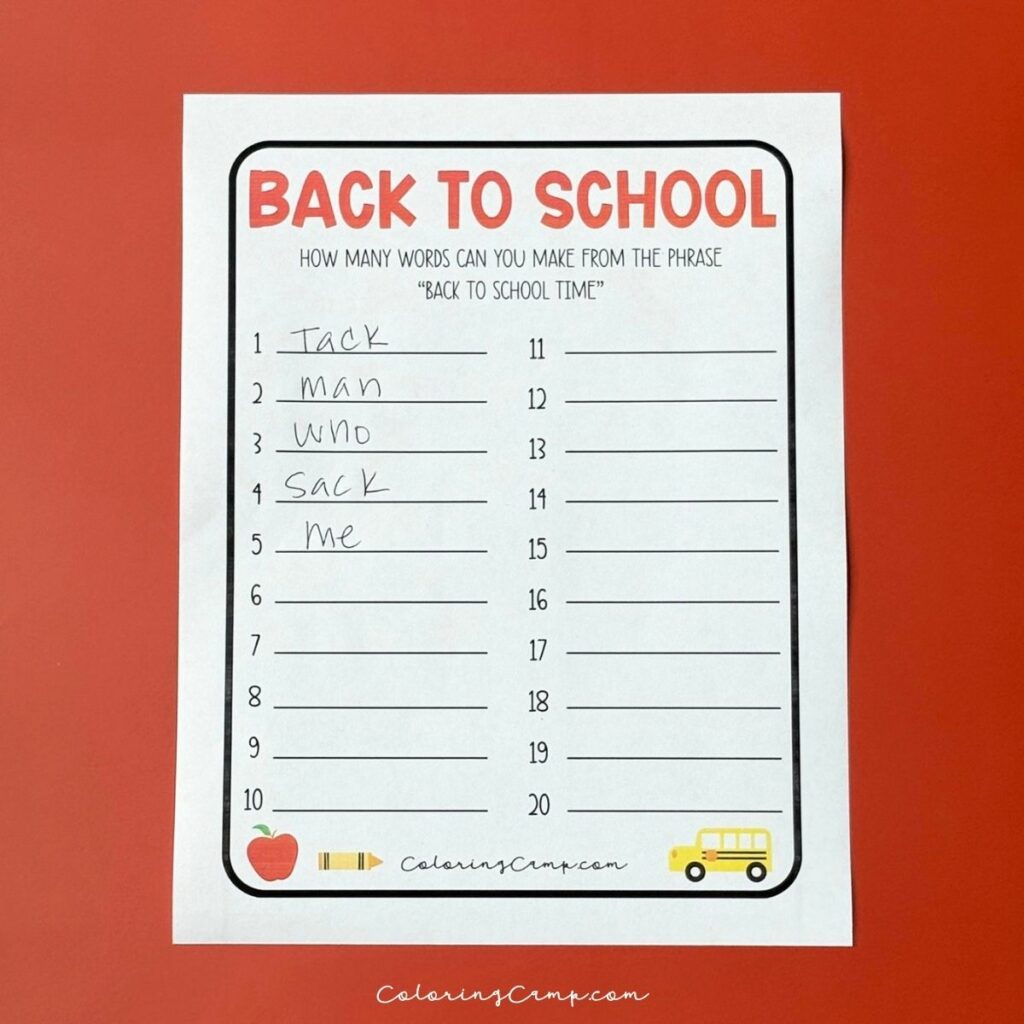 BACK TO SCHOOL
HOW MANY WORDS CAN YOU MAKE FROM THE PHRASE
“BACK TO SCHOOL TIME”
1 Tack
2 man
3 who
4 Sack
5 me
6
7
8
9
10
11
12
13
14
15
16
17
18
19
20
ColoringCamp.com
ColoringCamp.com